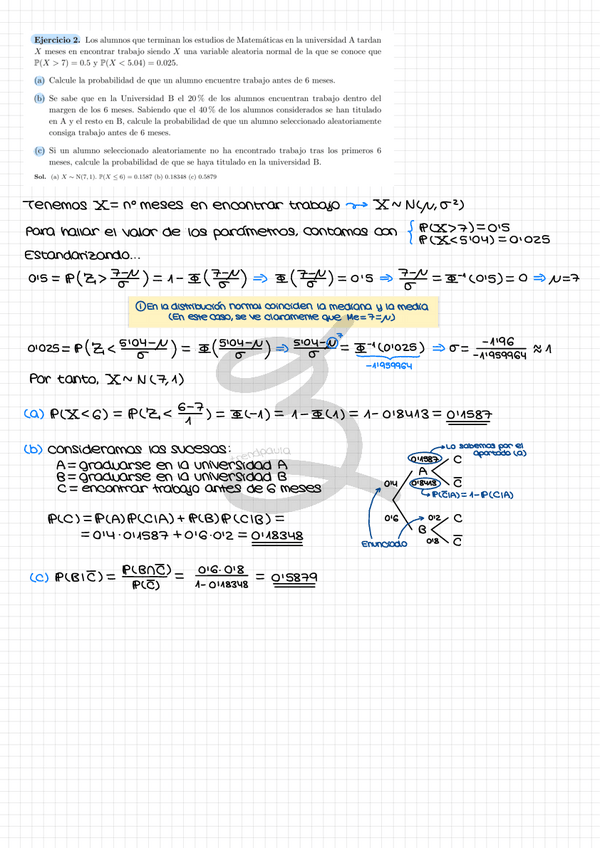 Ejercicio 2. Los alumnos que terminan los estudios de Matemáticas en la universidad A tardan
X meses en encontrar trabajo siendo X una variable aleatoria normal de la que se conoce que
ℙ(X > 7) = 0.5 y ℙ(X < 5.04) = 0.025.
(a) Calcule la probabilidad de que un alumno encuentre trabajo antes de 6 meses.
(b) Se sabe que en la Universidad B el 20 % de los alumnos encuentran trabajo dentro del
margen de los 6 meses. Sabiendo que el 40 % de los alumnos considerados se han titulado
en A y el resto en B, calcule la probabilidad de que un alumno seleccionado aleatoriamente
consiga trabajo antes de 6 meses.
(c) Si un alumno seleccionado aleatoriamente no ha encontrado trabajo tras los primeros 6
meses, calcule la probabilidad de que se haya titulado en la universidad B.
Sol. (a) X ∼ N(7, 1). ℙ(X ≤ 6) = 0.1587 (b) 0.18348 (c) 0.5879
Tenemos X = nº meses en encontrar trabajo ⇝ X ∼ N(μ, σ²)
Para hallar el valor de los parámetros, contamos con { ℙ(X>7) = 0'5
ℙ(X<5'04) = 0'025
Estandarizando...
0'5 = ℙ(Z > 7-μ/σ) = 1 - Φ(7-μ/σ) ⇒ Φ(7-μ/σ) = 0'5 ⇒ 7-μ/σ = Φ⁻¹(0'5) = 0 ⇒ μ=7
① En la distribución normal coinciden la mediana y la media
(En este caso, se ve claramente que Me = 7 = μ)
0'025 = ℙ(Z < 5'04-μ/σ) = Φ(5'04-μ/σ) ⇒ 5'04-μ/σ = Φ⁻¹(0'025) ⇒ σ = -1'96/-1'959964 ≈ 1
7
-1'959964
Por tanto, X ∼ N(7,1)
(a) ℙ(X<6) = ℙ(Z < 6-7/1) = Φ(-1) = 1 - Φ(1) = 1 - 0'8413 = 0'1587
(b) consideramos los sucesos:
A = graduarse en la universidad A
B = graduarse en la universidad B
C = encontrar trabajo antes de 6 meses
Lo sabemos por el
apartado (a)
0'1587 C
0'4 A
0'8413 C̄
ℙ(C̄|A) = 1 - ℙ(C|A)
0'6 0'2 C
B
Enunciado 0'8 C̄
ℙ(C) = ℙ(A)ℙ(C|A) + ℙ(B)ℙ(C|B) =
= 0'4 · 0'1587 + 0'6 · 0'2 = 0'18348
(c) ℙ(B|C̄) = ℙ(B∩C̄)/ℙ(C̄) = 0'6·0'8/1-0'18348 = 0'5879